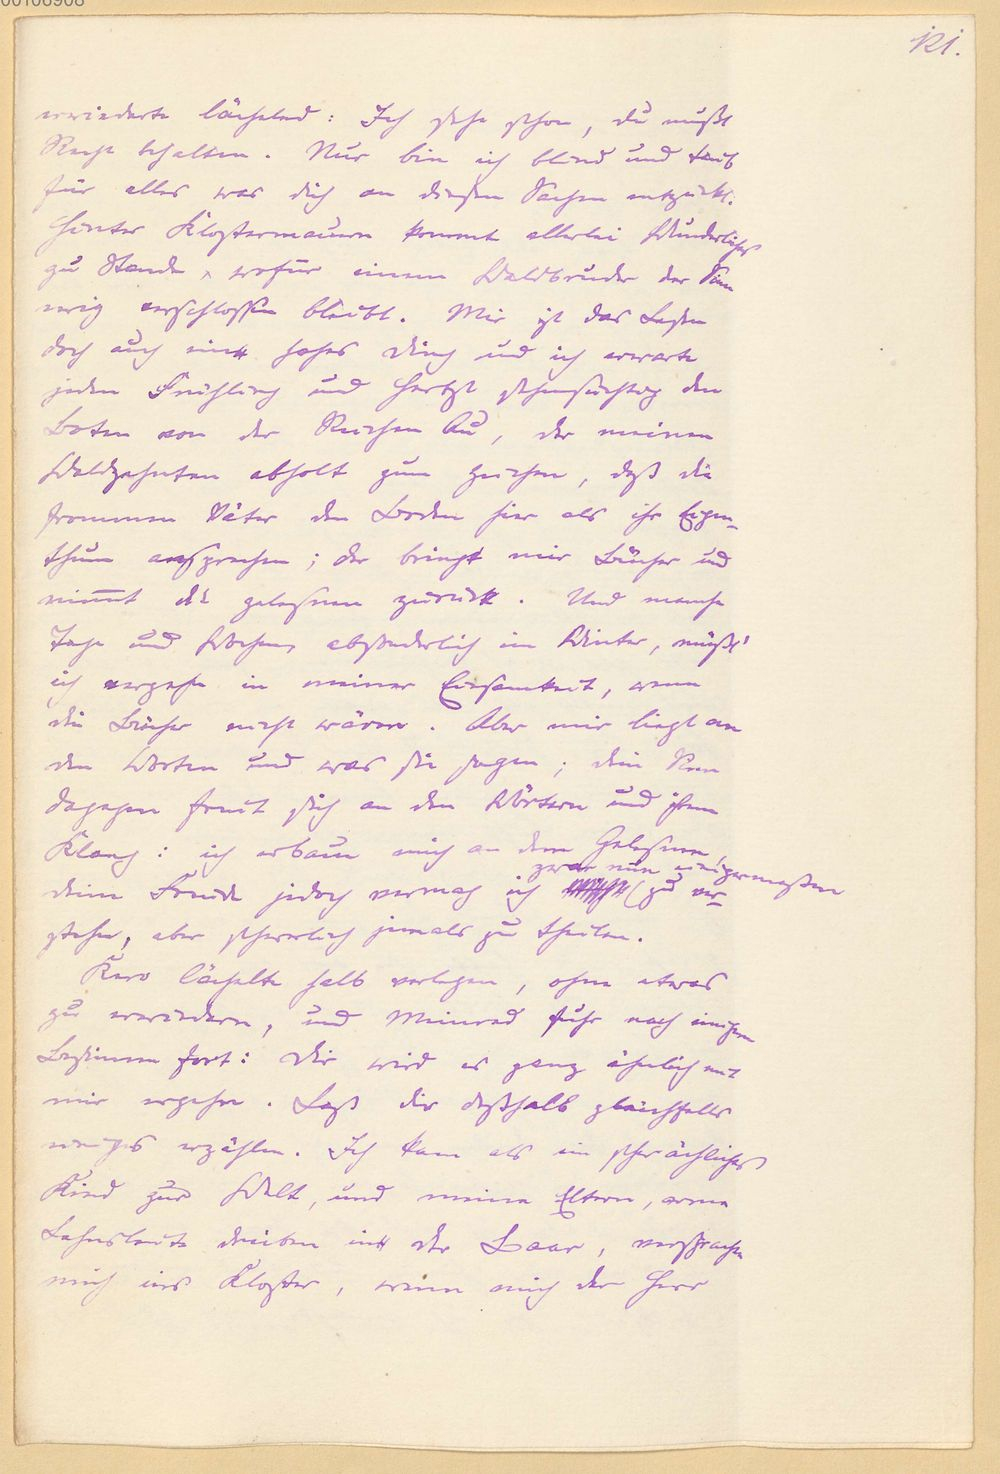 00106908
121.
erwiederte lächelnd: Ich sehe schon, du mußt
Recht behalten. Nur bin ich blind und taub
für alles was dich an diesen Sachen entzückt.
Hinter Klostermauern kommt allerlei Wunderliches
zu Stande, wofür einem Waldbruder der Sinn
ewig verschlossen bleibt. Mir ist das Lesen
doch auch ein hohes Ding und ich erwarte
jeden Frühling und Herbst sehnsüchtig den
Boten von der Reichen Au, der meinen
Waldzehnten abholt zum Zeichen, daß die
frommen Väter den Boden hier als ihr Eigen-
thum ansprechen; der bringt mir Bücher und
nimmt die gelesnen zurück. Und manche
Tage und Wochen, absonderlich im Winter, müßt'
ich vergehn in meiner Einsamkeit, wenn
die Bücher nicht wären. Aber mir liegt an
den Worten und was sie sagen; dein Sinn
dagegen freut sich an den Wörtern und ihrem
Klang: ich erbaue mich an dem Gelesnen,
zwar nun einigermaßen
deine Freude jedoch vermag ich zu ver-
stehn, aber schwerlich jemals zu theilen.
Kero lächelte halb verlegen, ohne etwas
zu erwiedern, und Meinrad fuhr nach einigem
Besinnen fort: Dir wird es ganz ähnlich mit
mir ergehn. Laß dir deßhalb gleichfalls
weniges erzählen. Ich kam als ein schwächliches
Kind zur Welt, und meine Eltern, arme
Lehnsleute drüben in der Baar, versprachen
mich ins Kloster, wenn mich der Herr